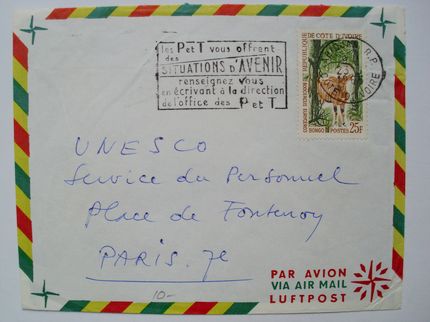 les P et T vous offrent
des
SITUATIONS d'AVENIR
renseignez vous
en écrivant à la direction
de l'office des P et T
REPUBLIQUE DE CÔTE D'IVOIRE
R.P.
BONGO POSTES 25F
UNESCO
Service du Personnel
Place de Fontenoy
PARIS. 7e
10-
PAR AVION
VIA AIR MAIL
LUFTPOST